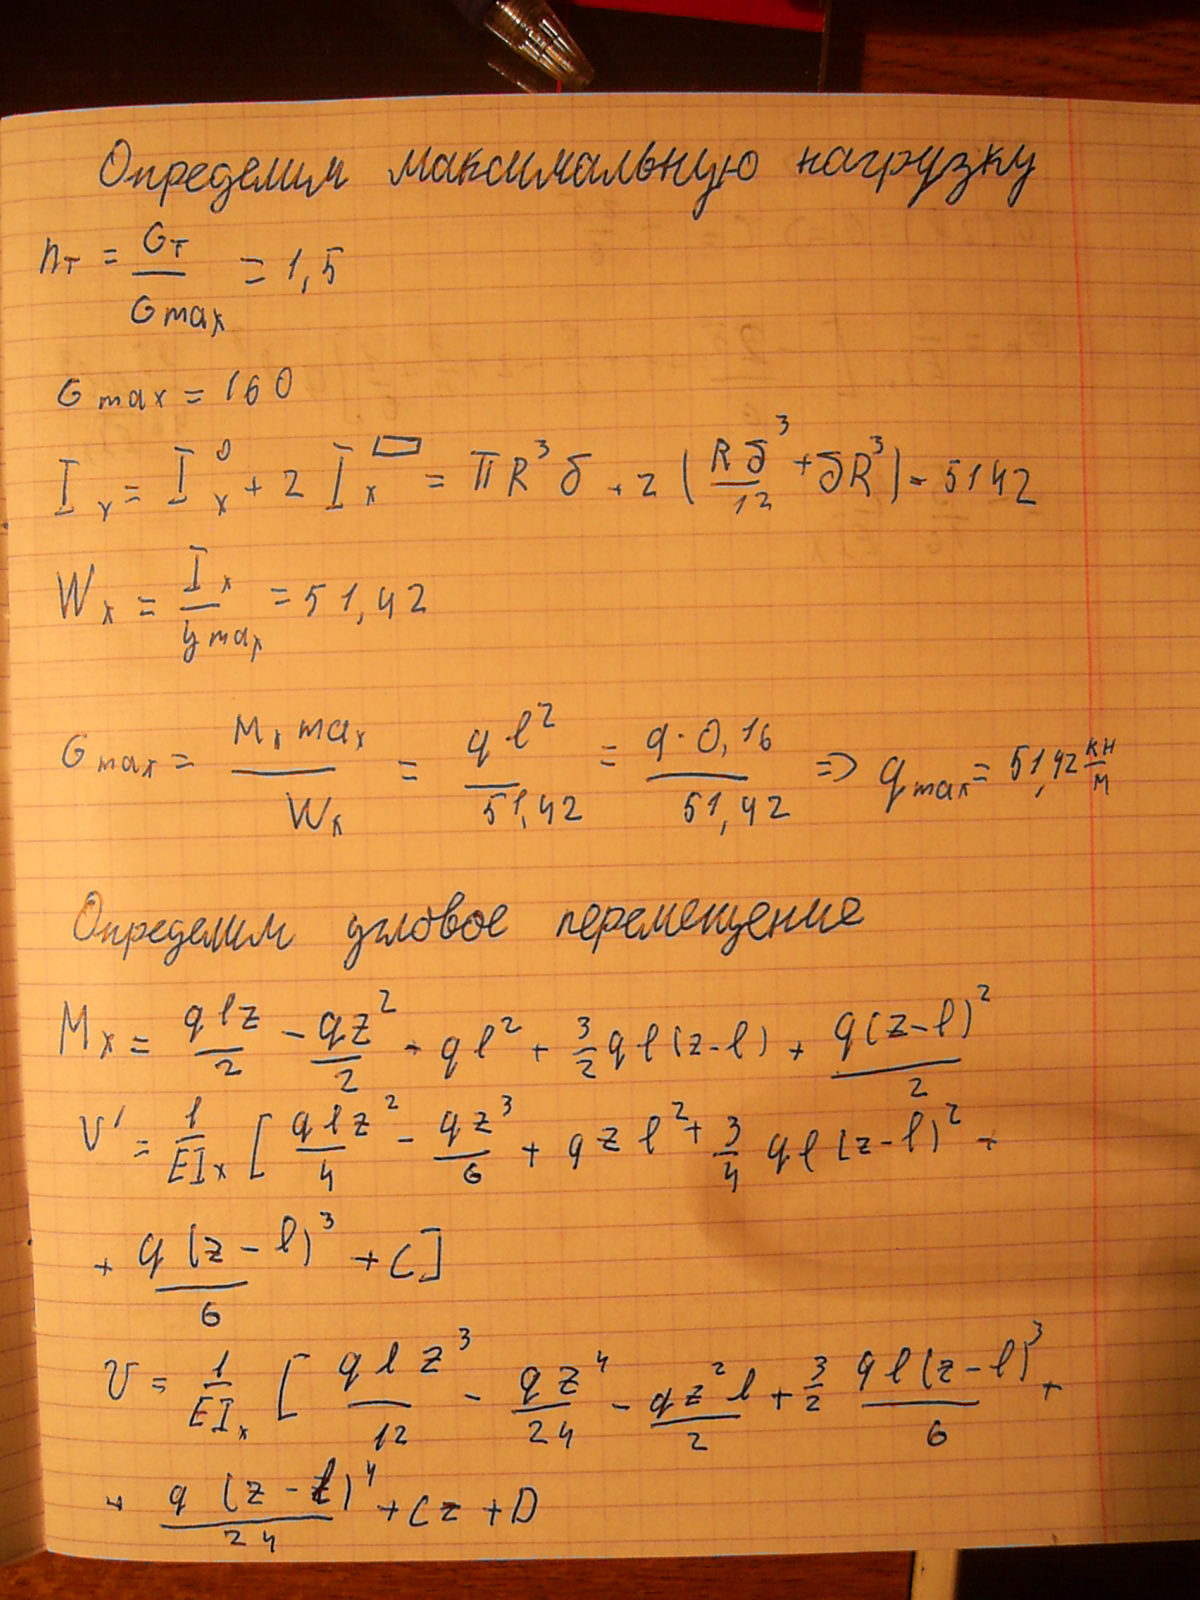 Определим максимальную нагрузку
n_т = σ_т / σ_max = 1,5
σ_max = 160
I_x = I_x^0 + 2 I_x^▭ = πR³δ + 2 (Rδ³/12 + δR³) = 5142
W_x = I_x / y_max = 51,42
σ_max = M_x max / W_x = ql² / 51,42 = q·0,16 / 51,42 => q_max = 51,42 кН/м
Определим угловое перемещение
M_x = qlz/2 - qz²/2 - ql² + 3/2 ql(z-l) + q(z-l)²/2
v' = 1/EI_x [ qlz²/4 - qz³/6 + qzl² + 3/4 ql(z-l)² +
+ q(z-l)³/6 + C]
v = 1/EI_x [ qlz³/12 - qz⁴/24 - qz²l/2 + 3/2 ql(z-l)³/6 +
+ q(z-l)⁴/24 + Cz + D